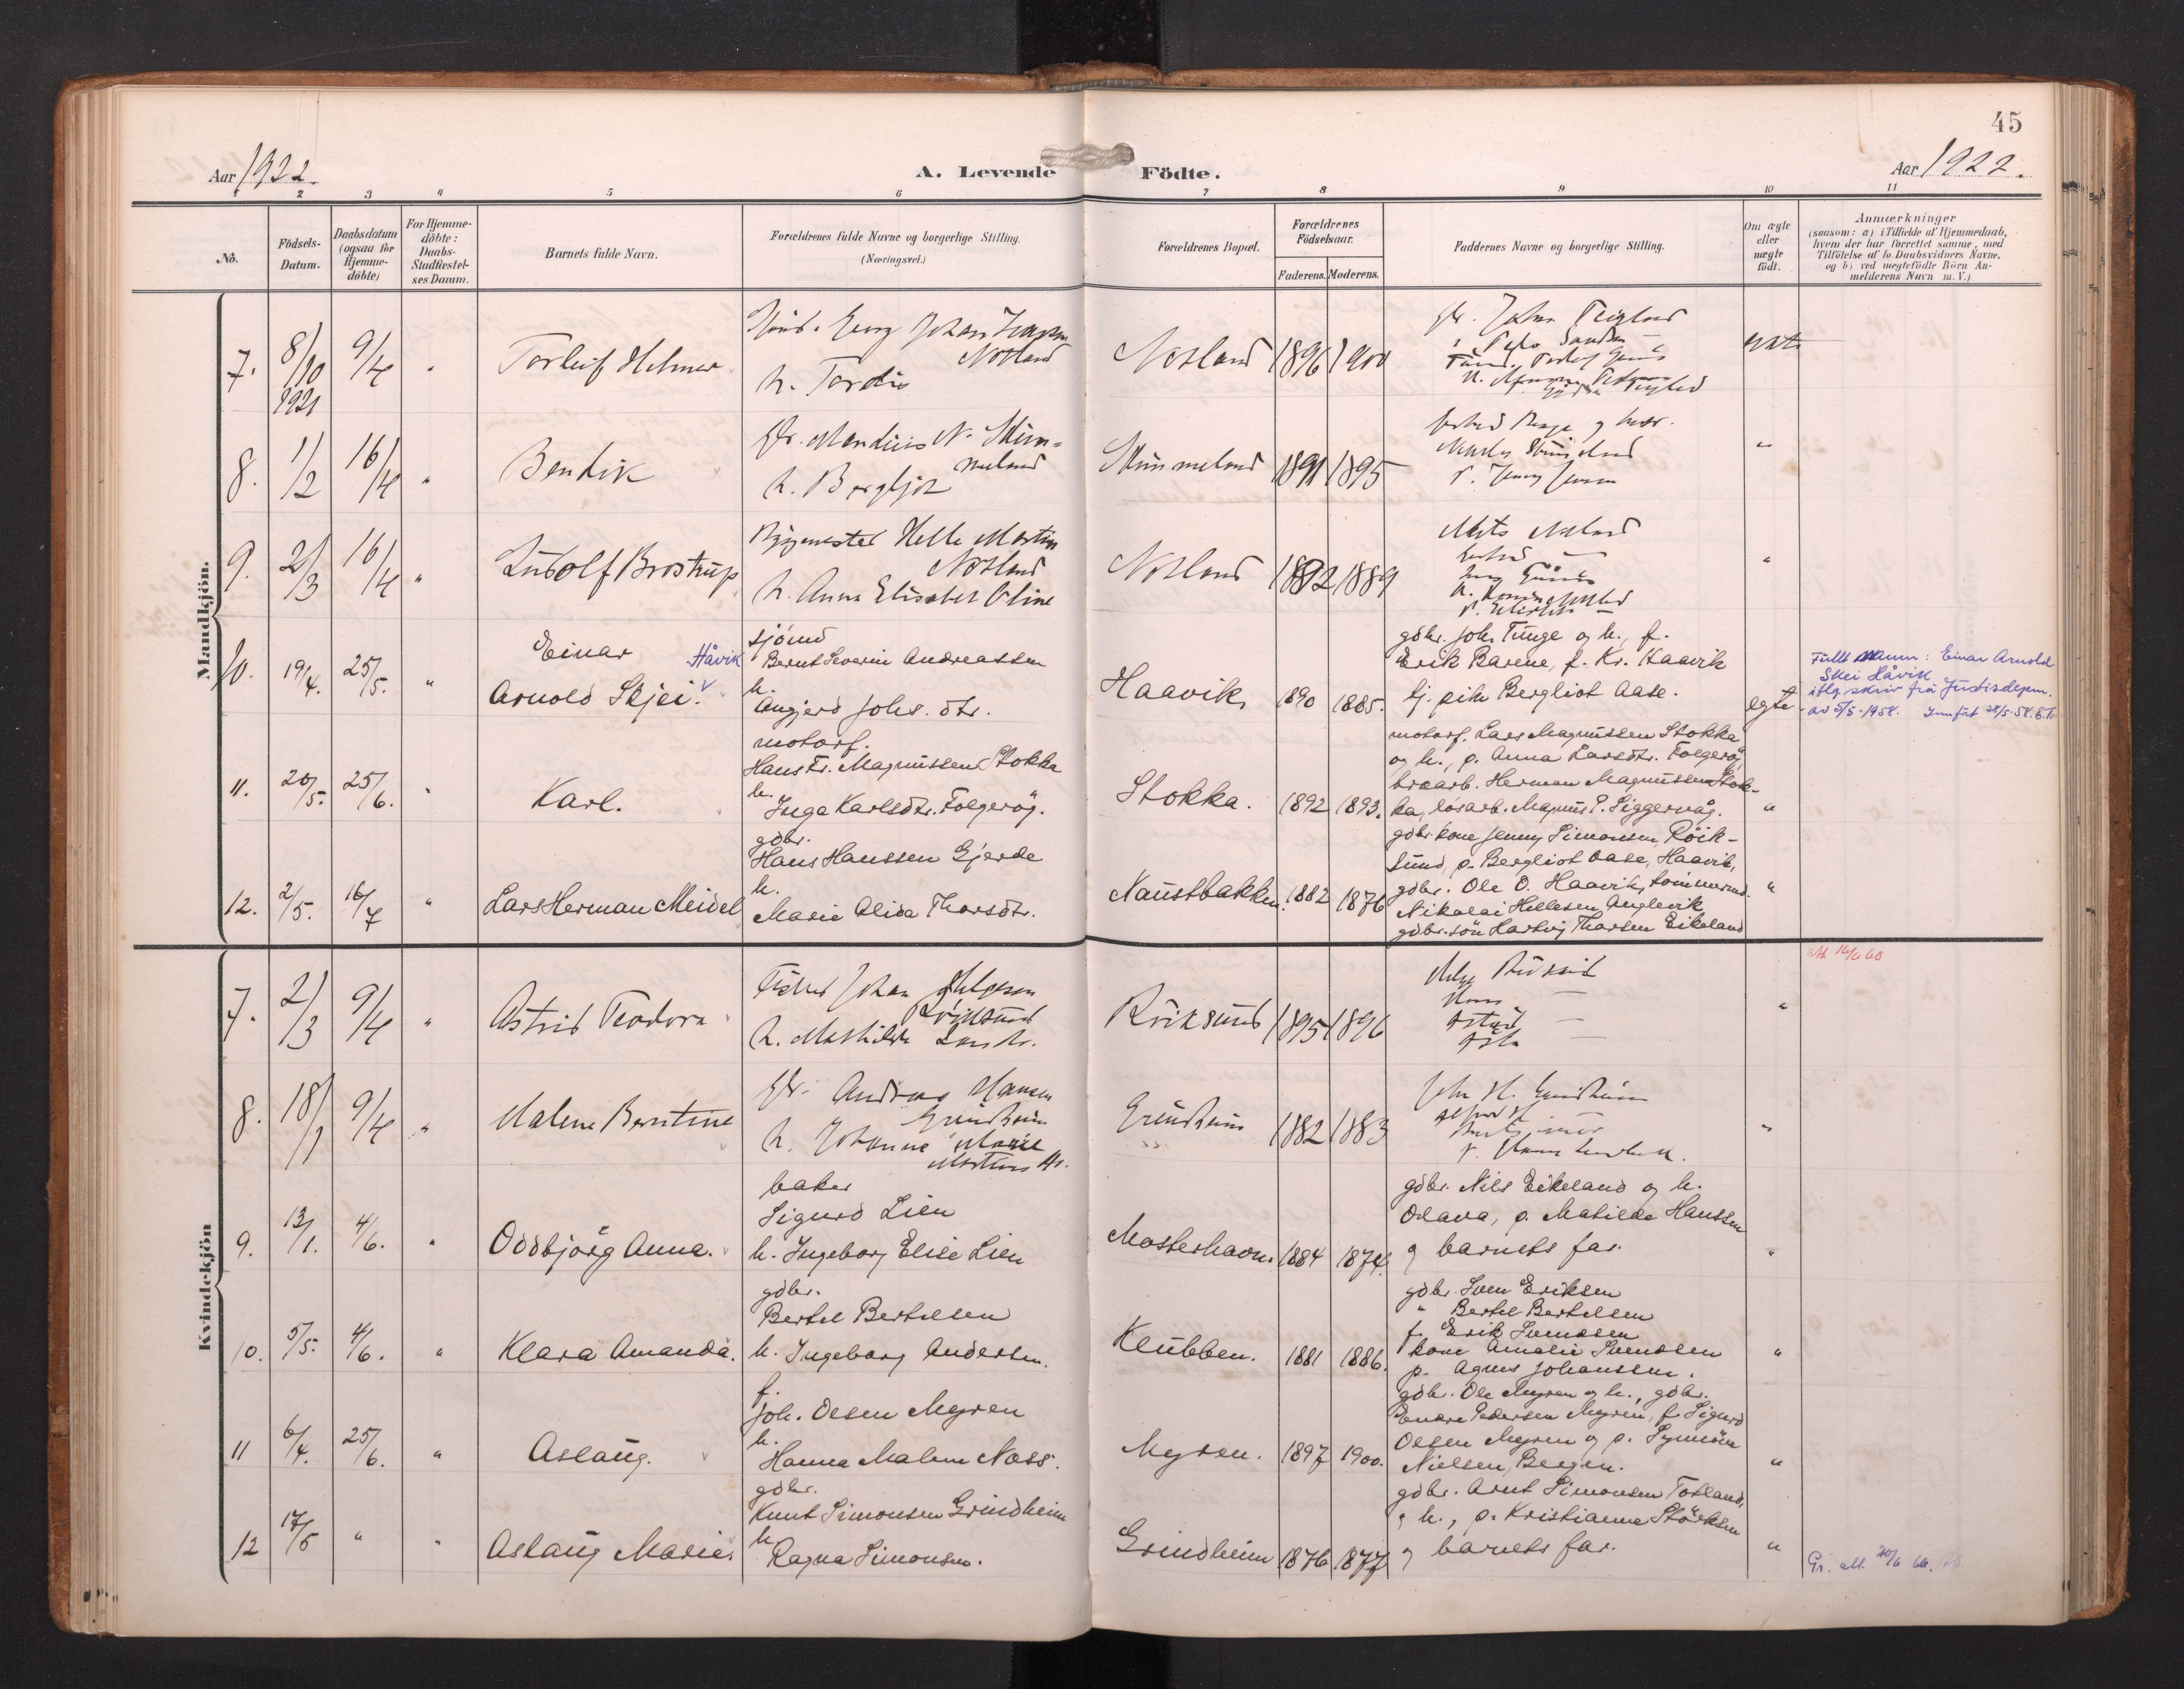 45
Aar 1922.
A. Levende Födte.
Aar 1922.
1 2 3 4 5 6 7 8 9 10 11
No.
Födsels-
Datum.
Daabsdatum
(ogsaa for
Hjemme-
döbte)
For Hjemme-
döbte:
Daabs-
Stadfæstel-
ses Datum.
Barnets fulde Navn.
Forældrenes fulde Navne og borgerlige Stilling.
(Næringsvei.)
Forældrenes Bopæl.
Forældrenes
Födselsaar.
Faderens. Moderens.
Faddernes Navne og borgerlige Stilling.
Om ægte
eller
uægte
födt.
Anmærkninger
(saasom: a) i Tilfælde af Hjemmedaab,
hvem der har forrettet samme, med
Tilföielse af to Daabsvidners Navne,
og b) ved uægtefödte Börn An-
melderens Navn m. V.)
Mandkjön.
7. 8/10 1921 9/4 "
Torleif Helmer
Johan
Notland
h. Tordis
Notland 1896 1900
8. 1/2 16/4 "
Bendik
gbr. Mandius N. Stum-
meland
h. Bergljot
1891 1895 "
9. 2/3 16/4 "
Ludolf Brostrup
Helle Martin
Notland
h. Anna Elisabet Oline
Notland 1892 1889 "
10. 19/4. 25/5. "
Einar Håvik
Arnold Skjei. v
sjömd
Bernt Severin Andreassen
h.
Angjerd Johs. dtr.
Haavik 1890 1885.
gdbr. Joh. Tunge og h., f.
Erik Barene, f. Kr. Haavik
tj. pike Bergliot Aase.
egte
Fullt namn: Einar Arnold
Skei Håvik
iflg. skriv frå Justisdepm.
av 5/5-1958. Innfört 28/5-58.
11. 20/5. 25/6. "
Karl.
motorf.
Hans Fr. Magnussen Stokka
h.
Inga Karlsdtr. Folgerøy.
Stokka. 1892 1893.
motorf. Lars Magnussen Stokka
og h., p. Anna Larsdtr. Folgerøy,
broarb. Herman Magnussen Stok-
ka, lösarb. Magnus P. Siggervåg.
"
12. 2/5. 16/7 "
Lars Herman Meidel
gdbr.
Hans Hanssen Gjerde
h.
Marie Alida Thorsdtr.
Naustbakken. 1882 1876
gdbr. kone Jenny Simonsen, Röik-
sund, p. Bergliot Aase, Haavik,
gdbr. Ole O. Haavik, tömmermd.
Nikolai Hellesen Anglevik
gdbr. sön Hartvig Thorsen Eikeland
"
Kvindekjön
7. 2/3 9/4 "
Astrid Teodora
Johan Helgesen
Röiksund
h. Mathilde Lars dtr.
Röiksund 1895 1896 "
8. 18/1 9/4 "
Malene Berntine
gbr. Andreas Hansen
Grindheim
h. Johanna Marie
Mortens dtr.
Grindheim 1882 1883 "
9. 13/1. 4/6. "
Oddbjörg Anna.
baker
Sigurd Lien
h. Ingeborg Elise Lien
Mosterhavn. 1884 1874.
gdbr. Nils Eikeland og h.
Olava, p. Matilde Hanssen
og barnets far.
"
10. 5/5. 4/6. "
Klara Amanda.
gdbr.
Bertel Bertelsen
h. Ingeborg Andersen.
Klubben. 1881 1886.
gdbr. Sven Eriksen
" Bertel Bertelsen
f. Erik Svendsen
kone Amalie Svendsen
p. Agnes Johanssen.
"
11 6/4. 25/6. "
Aslaug.
f.
Joh. Olsen Myren
h.
Hanna Malene Næss.
Myren. 1897 1900.
gdbr. Ole Myren og h., gdbr.
Endre Pedersen Myren, f. Sigurd
Olsen Myren og p. Synnöve
Nielsen, Bergen.
"
12 17/5 " "
Aslaug Marie.
gdbr.
Knut Simonsen Grindheim
h.
Ragna Simonsen.
Grindheim 1876 1877
gdbr. Arnt Simonsen Totland,
og h., p. Kristianne Störksen
og barnets far.
"